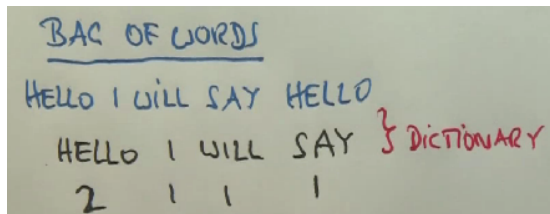 BAG OF WORDS
HELLO I WILL SAY HELLO
HELLO I WILL SAY } DICTIONARY
2 1 1 1